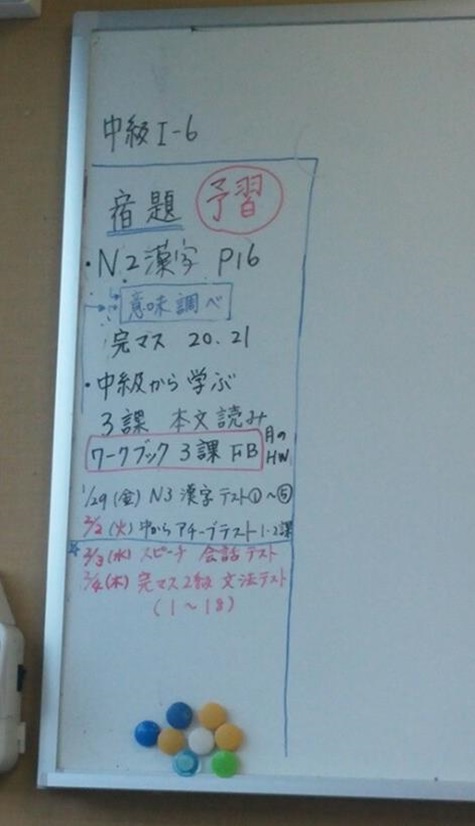 中級I-6
宿題 予習
・N2漢字 P16
意味調べ
完マス 20.21
・中級から学ぶ
3課 本文読み
ワークブック 3課 FB 月のHW
1/29(金) N3 漢字テスト①~⑤
2/2(火) 中からアチーブテスト1-2課
2/3(水) スピーチ 会話テスト
2/4(木) 完マス2級 文法テスト
(1~18)